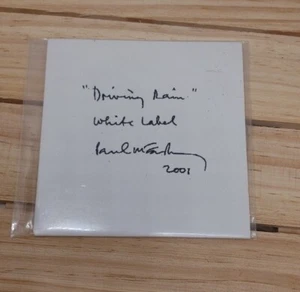 "Driving Rain"
White Label
Paul McCartney
2001